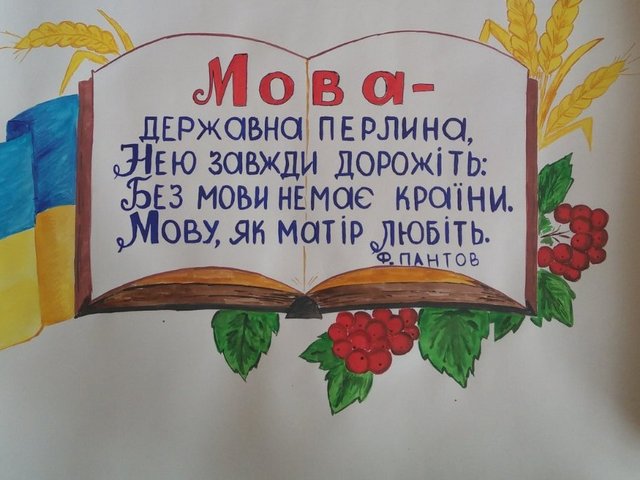 Мова-
ДЕРЖАВНА ПЕРЛИНА,
НЕЮ ЗАВЖДИ ДОРОЖІТЬ:
БЕЗ МОВИ НЕМАЄ КРАЇНИ.
МОВУ, ЯК МАТІР ЛЮБІТЬ.
Ф. ПАНТОВ